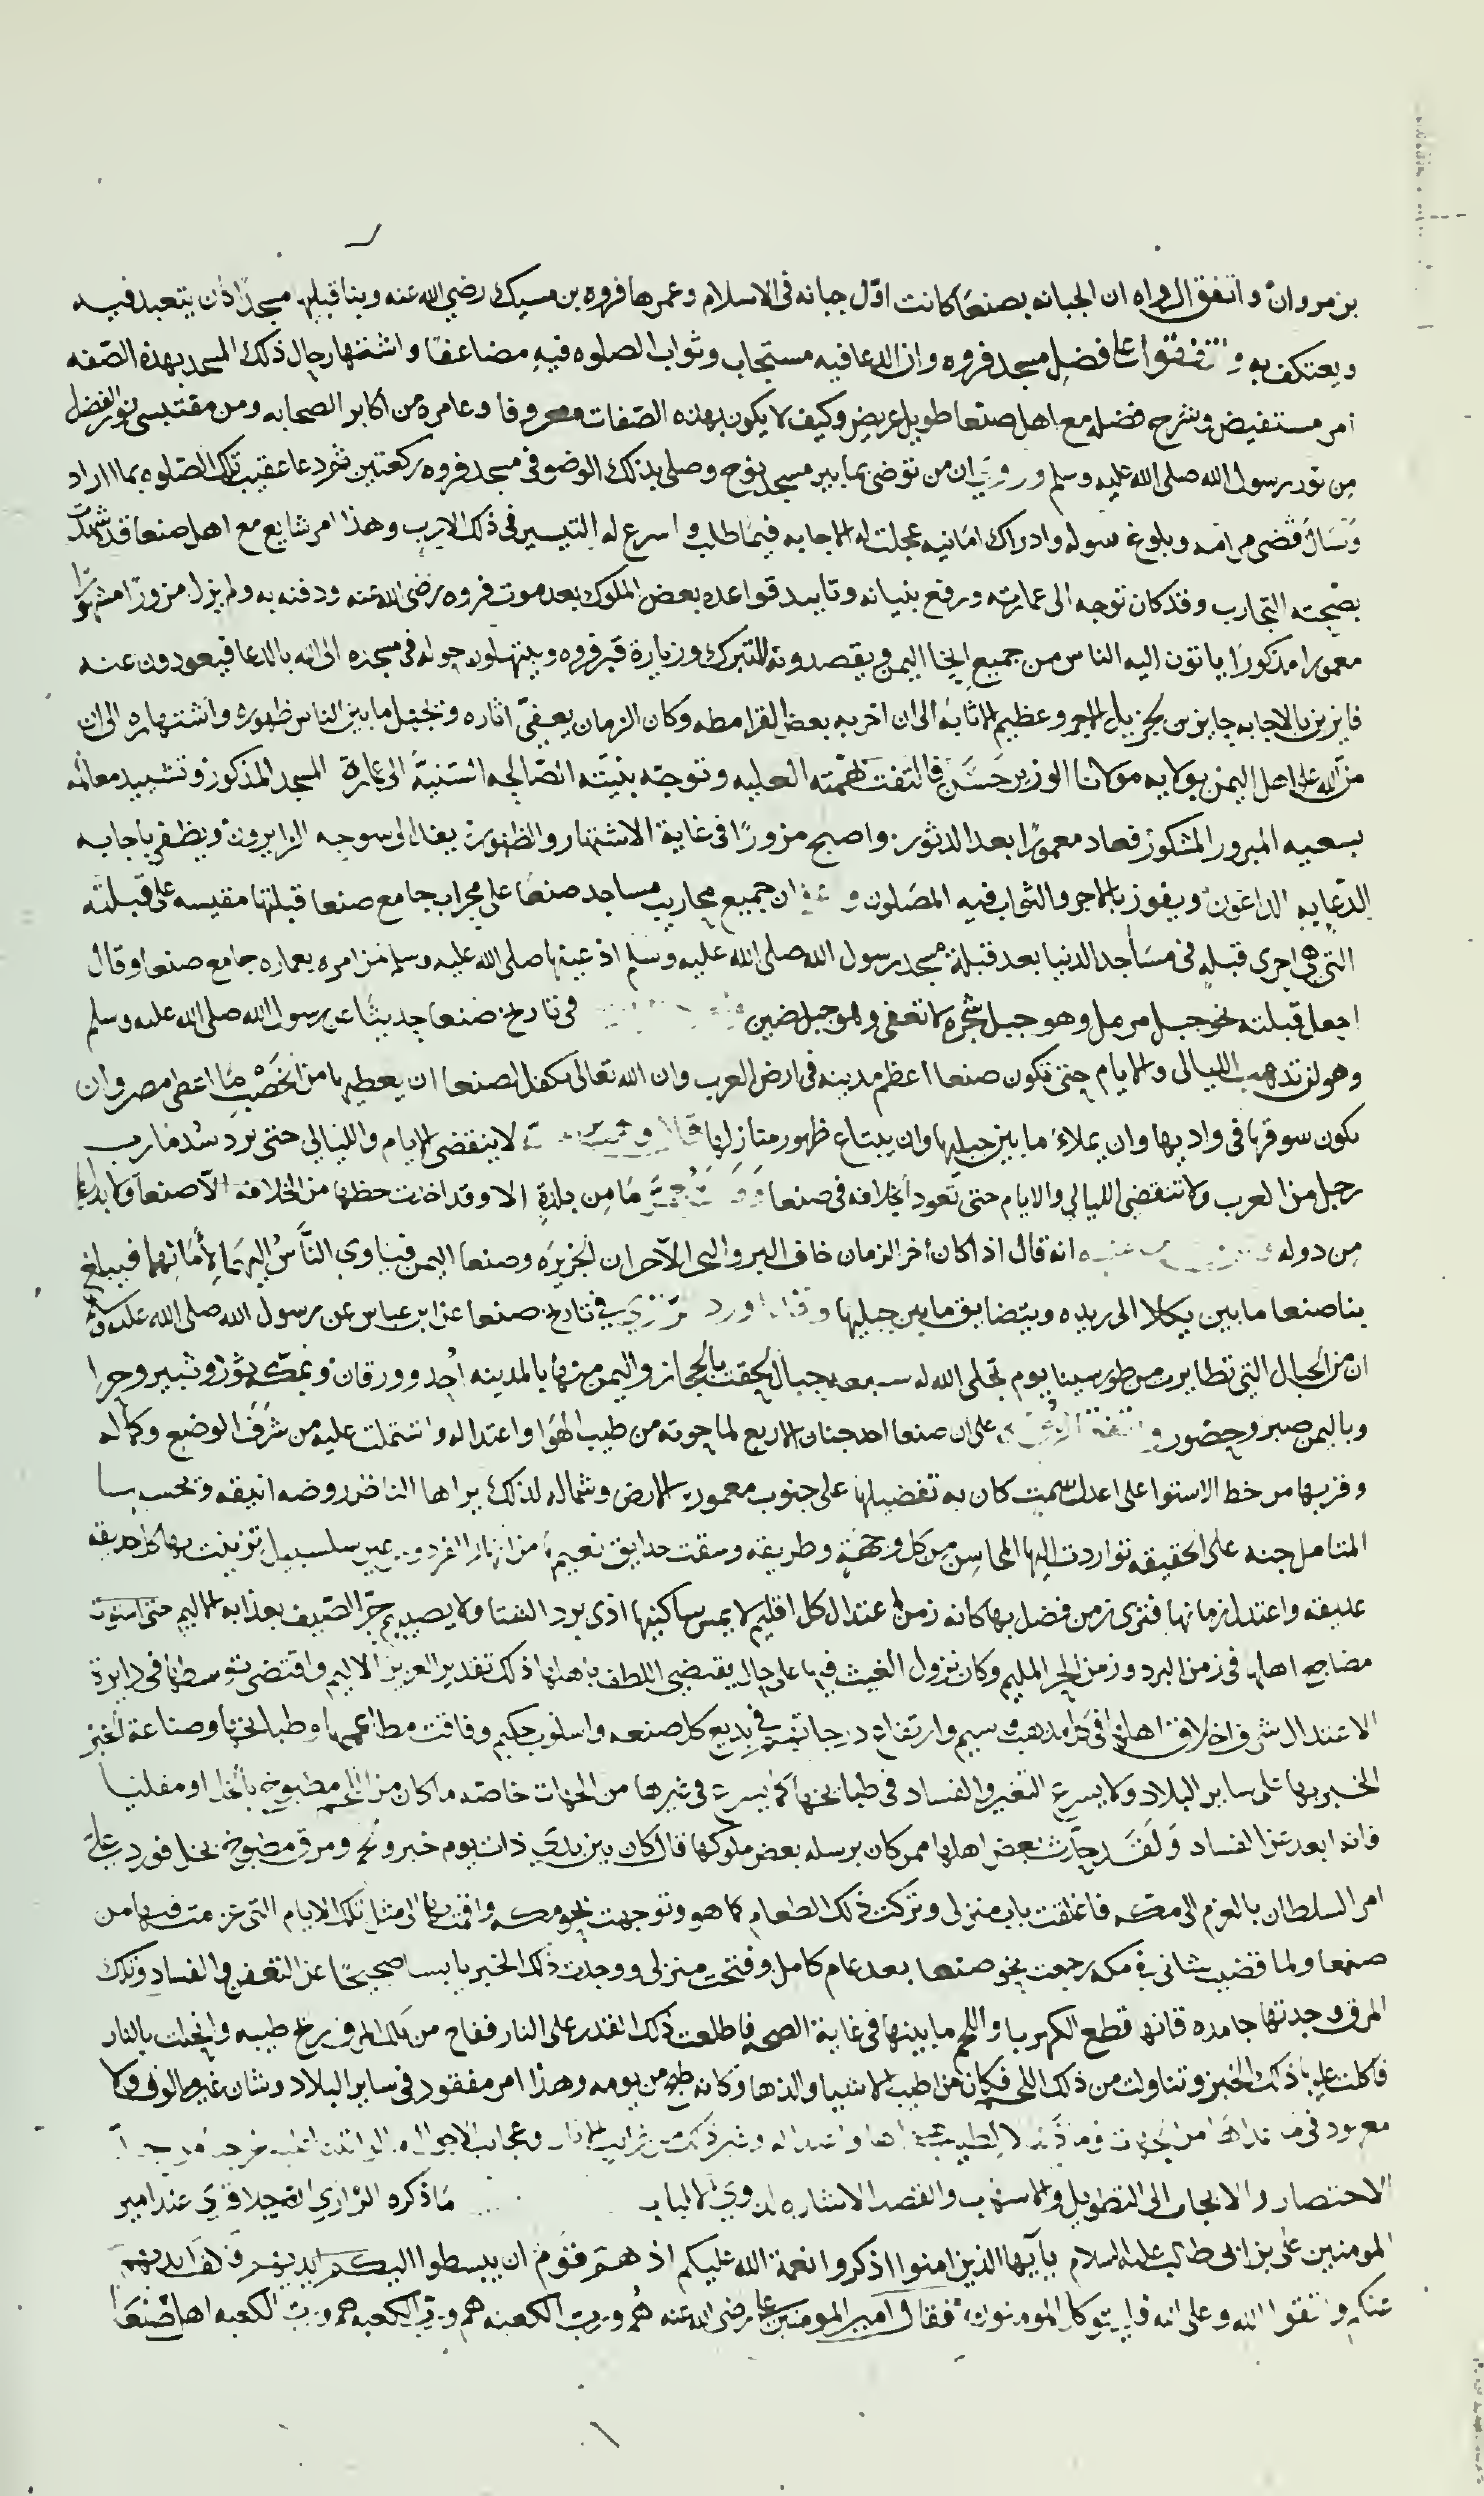 بن مروان واتفق الرواه ان الجبانه بصنعا كانت اول جبانه فى الاسلام وعمرها فروه بن مسيك رضي الله عنه وبنا قبلها مسجدا اذن يتعبد فيه
ويعتكف به واتفقوا على فضل مسجد فروه وان الدعا فيه مستجاب وثواب الصلوه فيه مضاعفا واشتهار حال ذلك المسجد بهذه الصفه
امر مستفيض وشرح فضله مع اهل صنعا طويل عريض وكيف لا يكون بهذه الصفات معروفا وعامره من اكابر الصحابه ومن مقتبسى نور الفضل
من نور رسول الله صلى الله عليه وسلم وروي ان من توضى بما بير مسجد نوح وصلى بذلك الوضو فى مسجد فروه ركعتين ثم دعا عقيب تلك الصلوه بما اراد
وسال قضى مرامه وبلوغ سوله وادراك امانيه عجلت له الاجابه فيما طلب واسرع له التيسير فى ذلك الارب وهذا امر شايع مع اهل صنعا قد شهدت
بصحته التجارب وقد كان توجه الى عمارته ورفع بنيانه وتاييد قواعده بعض الملوك بعد موت فروه رضى الله عنه ودفنه به ولم يزل مزورا مشهورا
معمورا مذكورا ياتون اليه الناس من جميع انحا اليمن ويقصدونه للتبرك وزيارة قبر فروه ويبتهلون حوله فى مسجده الى الله بالدعا فيعودون عنه
فايزين بالاجابه حايزين جزيل الاجر وعظيم الاثابه الى ان اخربه بعض القرامطه وكان الزمان يعفي اثاره وتجهل ما بين الناس ظهوره واشتهاره الى ان
من الله على اهل اليمن بولايه مولانا الوزير حسن فالتفت بهمته العليه وتوجه بنيته الصالحه السنية الى عمارة المسجد المذكور وتشييد معالمه
بسعيه المبرور المشكور فعاد معمورا بعد الدثور واصبح مزورا فى غاية الاشتهار والظهور يفد الى سوحه الزايرون ويظفر باجابه
الدعا به الداعون ويفوز بالاجر والثواب فيه المصلون و ان جميع محاريب مساجد صنعا على محراب جامع صنعا قبلتها مقيسه على قبلته
التى هي احرى قبله فى مساجد الدنيا بعد قبلة مسجد رسول الله صلى الله عليه وسلم اذ عينها صلى الله عليه وسلم لمن امره بعماره جامع صنعا وقال
اجعل قبلته نحو جبل مرمل وهو جبل شجره لا تعفى وهو جبل ضين فى تاريخ صنعا حديثا عن رسول الله صلى الله عليه وسلم
وهو لن تذهب الليالى والايام حتى تكون صنعا اعظم مدينه فى ارض العرب وان الله تعالى تكفل لصنعا ان يعطيها من الخصب ما اعطى مصر وان
يكون سوقها فى واديها وان يملاء ما بين جبليها وان يبتاع ظهور منازلها لا ينقضى الايام والليالي حتى يرد سد مارب
رجل من العرب ولا تنقضى الليالي والايام حتى تعود الخلافه فى صنعا ما من بلدة الا وقد اخذت حظها من الخلافه الا صنعا ولا بد لها
من دوله انه قال اذا كان اخر الزمان خاف البر والبحر الا حران الجزيره وصنعا اليمن فياوي الناس اليهما لامانهما فيبلغ
بنا صنعا ما بين يكلا الى ريده ويتضايق ما بين جبليها ورد فى تاريخ صنعا عن ابن عباس عن رسول الله صلى الله عليه وسلم
ان من الجبال التى تطايرت من طور سينا يوم تجلى الله له سبعه جبال لحقت بالحجاز واليمن منها بالمدينه احد وورقان وبمكه ثور وثبير وحرا
وباليمن صبر وحضور على ان صنعا احد جنان الارض الاربع لما حوته من طيب الهوا واعتداله واشتملت عليه من شرف الوضع وكماله
وقربها من خط الاستوا على اعدل سمت كان به تفضيلها على جنوب معمور الارض وشماله لذلك يراها الناظر روضه انيقه وتحسبها
المتامل جنه على الحقيقه تواردت اليها المحاسن من كل وجهة وطريقه وسقت حدايق نعيمها من انهار الفردوس عين سلسبيل تزينت بها كل حديقه
عليقه واعتدل زمانها فترى زمن فضل بها كانه زمن اعتدال كل اقليم لا يمس ساكنيها اذى برد الشتا ولا يصيبهم حر الصيف بعذابه الاليم حتى استوت
مضاجع اهلها فى زمن البرد وزمن الحر المليم وكان نزول الغيث فيها على حال يقتضي اللطف باهلها ذلك تقدير العزيز العليم واقتضى توسطها فى دايرة
الاعتدال شرف اخلاق اهلها فى كل مذهب وسيم وارتفاع درجاتهم في بديع كل صنعه واسلوب حكيم وفاقت مطاعمها طباختها وصناعة لخبز
الخبز بها على ساير البلاد ولا يسرع التغير والفساد فى طبايخها كما يسرع فى غيرها من الجهات خاصه ما كان من اللحم مطبوخا بالخل او مقليا
فانه ابعد عن الفساد ولقد حدث بعض اهلها ممن كان يرسله بعض ملوكها قال كان بين يدي ذات يوم خبز ولحم ومرق مطبوخ بخل فورد علي
امر السلطان بالعزم الى مكه فاغلقت باب منزلى وتركت ذلك الطعام كما هو وتوجهت نحو مكه واقمت بها الى مثل تلك الايام التى عزمت فيها من
صنعا ولما قضيت شانى فى مكه رجعت نحو صنعا بعد عام كامل وفتحت منزلى ووجدت ذلك الخبز يابسا صحيحا عن التعفن والفساد وتلك
المرق وجدتها جامده كانها قطع الكهربا واللحم ما بينها فى غاية الصحه فاطلعت ذلك القدر على النار ففاح من تلك المرق ريح طيبه وانحلت بالنار
فاكلت عليها ذلك الخبز وتناولت من ذلك اللحم فكان من اطيب الاشيا والذها وكانه طبخ من يومه وهذا امر مفقود فى ساير البلاد وشان غير مالوف ولا
معهود فى
الاختصار والايجاز الى التطويل والاسهاب والقصد الاشاره لذوي الالباب ما ذكره الرازي عند امير
المومنين على بن ابى طالب عليه السلام يا ايها الذين امنوا اذكروا نعمة الله عليكم اذ هم قوم ان يبسطوا اليكم ايديهم فكف ايديهم
عنكم واتقوا الله وعلى الله فليتوكل المومنون فقال امير المومنين على رضى الله عنه هم ورب الكعبه هم ورب الكعبه هم ورب الكعبه اهل صنعا